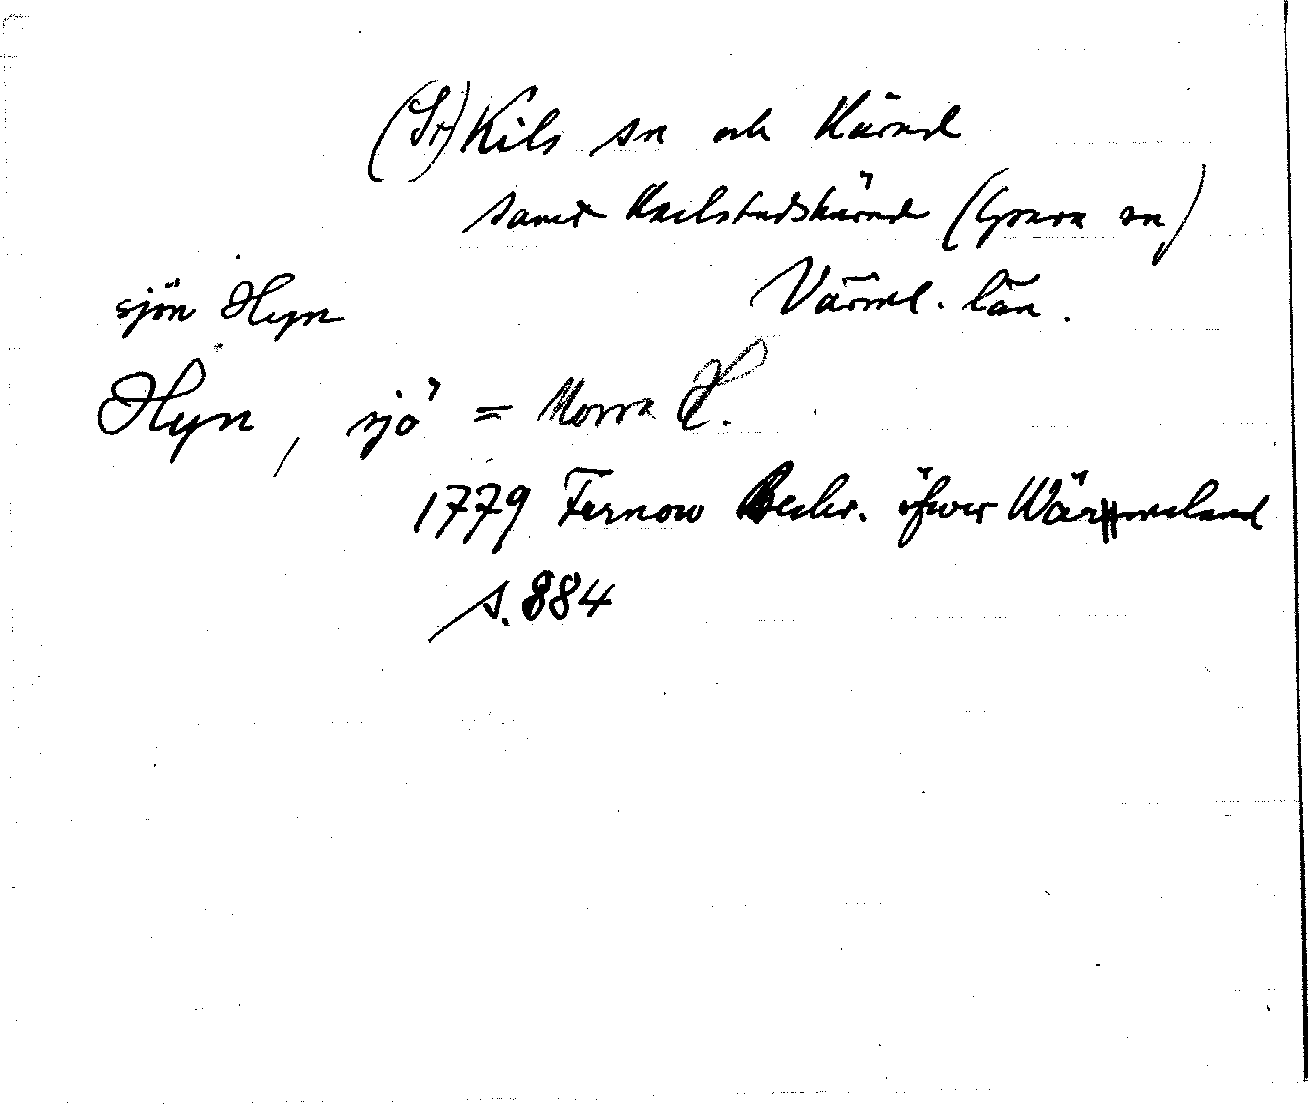 (St) Kils sn och härad
samt Karlstads härad (Grava sn)
sjön Hyn Värml. län.
Hyn, sjö = Norra H.
1779 Fernow Beskr. öfwer Wärmeland
s. 884